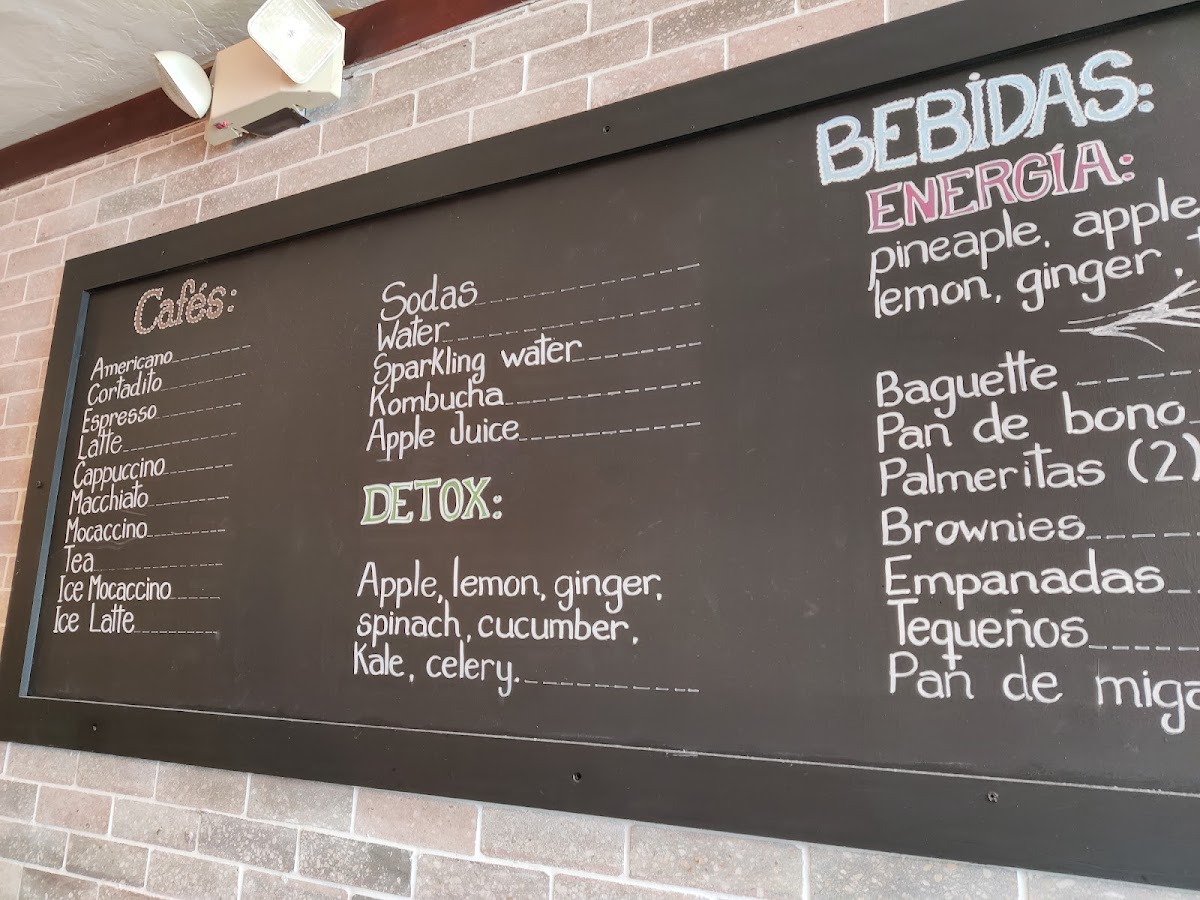 Cafés:
Americano
Cortadito
Espresso
Latte
Cappuccino
Macchiato
Mocaccino
Tea
Ice Mocaccino
Ice Latte
Sodas
Water
Sparkling water
Kombucha
Apple Juice
DETOX:
Apple, lemon, ginger,
spinach, cucumber,
Kale, celery.
BEBIDAS:
ENERGÍA:
pineaple, apple
lemon, ginger,
Baguette
Pan de bono
Palmeritas (2)
Brownies
Empanadas
Tequeños
Pan de miga